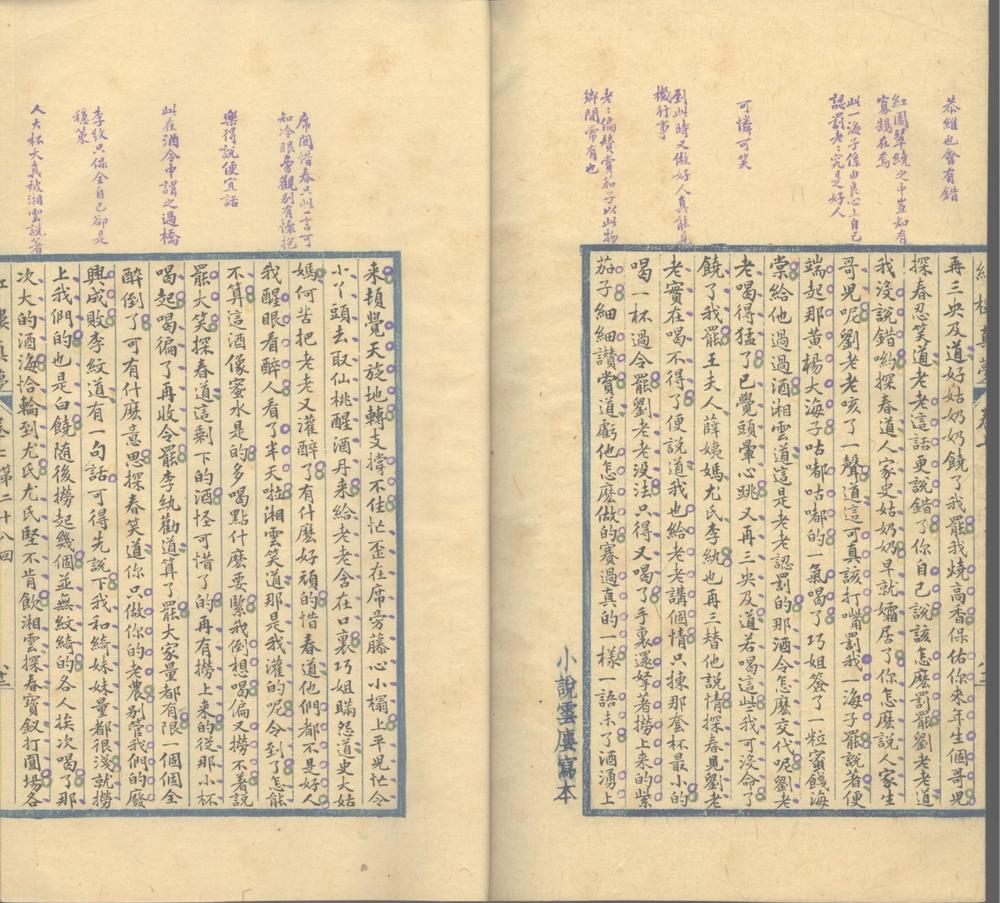 恭維也會有錯
紅圍翠繞之中豈知有
寡鵠在焉
此一海子係由良心上自己
認罰老老究是好人
可憐可笑
到此時又做好人真能見
機行事
老老偏贊賞茄子以此物
鄉間常有也
再三央及道好姑奶奶饒了我罷我燒高香保佑你來年生個哥兒
探春忍笑道老老這話更說錯了你自己說該怎麽罰罷劉老老道
我沒說錯喲探春道人家史姑奶奶早就孀居了你怎麽說人家生
哥兒呢劉老老咳了一聲道這可真該打嘴罰我一海子罷說著便
端起那黄楊大海子咕嘟咕嘟的一氣喝了巧姐簽了一粒蜜餞海
棠給他過過酒湘雲道這是老老認罰的那酒令怎麽交代呢劉老
老喝得猛了已覺頭暈心跳又再三央及道若喝這些我可沒命了
饒了我罷王夫人薛姨媽尤氏李紈也再三替他說情探春見劉老
老實在喝不得了便說道我也給老老講個情只揀那套杯最小的
喝一杯過令罷劉老老沒法只得又喝了手裏還拏著撈上來的紫
茄子細細讚賞道虧他怎麽做的賽過真的一樣一語未了酒湧上
小說雲廔寫本
席間惜春只此一言可
知冷眼旁觀别有懷抱
樂得說便宜話
此在酒令中謂之過橋
李紋只保全自己卻是
穩策
人大杯大真被湘雲說著
來頓覺天旋地轉支撐不住忙歪在席旁藤心小榻上平兒忙令
小丫頭去取仙桃醒酒丹來給老老含在口裏巧姐瞞怨道史大姑
媽何苦把老老又灌醉了有什麽好頑的惜春道他們都不是好人
我醒眼看醉人看了半天啦湘雲笑道那是我灌的呢今到了怎能
不算這酒像蜜水是的多喝點什麽要緊我倒想喝偏又撈不著說
罷大笑探春道這剩下的酒怪可惜了的再有撈上來的從那小杯
喝起喝徧了再收令罷李紈勸道算了罷大家量都有限一個個全
醉倒了可有什麽意思探春笑道你只做你的老農别管我們的廢
興成敗李紋道有一句話可得先說下我和綺妹妹量都很淺就撈
上我們的也是白饒隨後撈起幾個並無紋綺的各人挨次喝了那
次大的酒海恰輪到尤氏尤氏堅不肯飲湘雲探春寶釵打圓場各